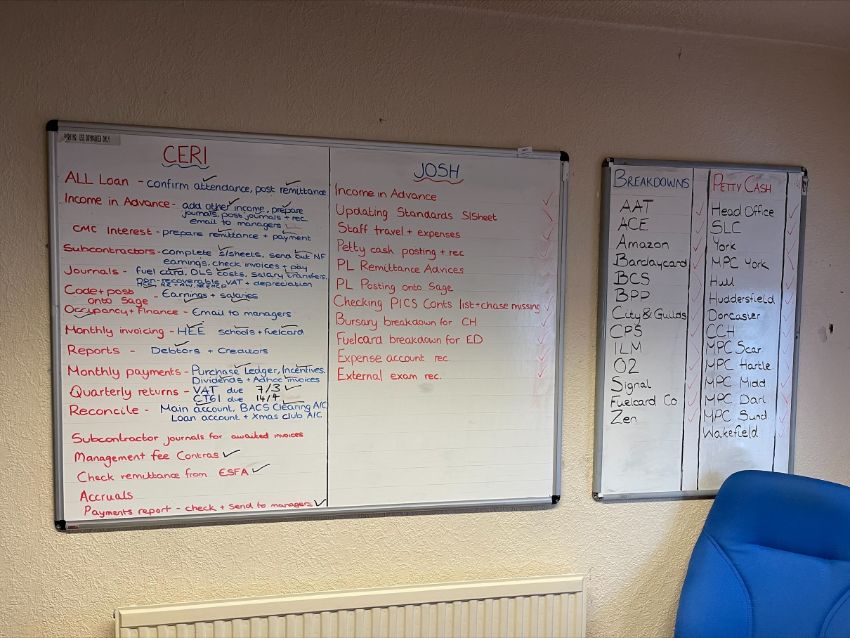 CERI
ALL Loan - confirm attendance, post remittance
Income in Advance - add other income, prepare
journals, post journals + rec
email to managers
CMC Interest - prepare remittance + payment
Subcontractors - complete s/sheets, send out NF
earnings, check invoices + pay
Journals - fuel card, DLS costs, salary transfers,
irrecoverable VAT + depreciation
Code + post - Earnings + salaries
onto Sage
Occupancy + Finance - Email to managers
Monthly invoicing - HEE schools + fuelcard
Reports - Debtors + Creditors
Monthly payments - Purchase Ledger, Incentives,
Dividends + Adhoc invoices
Quarterly returns - VAT due 7/3
CT61 due 14/4
Reconcile - Main account, BACS Clearing A/C
Loan account + Xmas club A/C
Subcontractor journals for awaited invoices
Management fee Contras
Check remittance from ESFA
Accruals
Payments report - check + send to managers
JOSH
Income in Advance
Updating Standards S/Sheet
Staff travel + expenses
Petty cash posting + rec
PL Remittance Advices
PL Posting onto Sage
Checking PICS Conts list + chase missing
Bursary breakdown for CH
Fuelcard breakdown for ED
Expense account rec
External exam rec.
BREAKDOWNS
AAT
ACE
Amazon
Barclaycard
BCS
BPP
City & Guilds
CPS
ILM
O2
Signal
Fuelcard Co
Zen
PETTY CASH
Head Office
SLC
York
MPC York
Hull
Huddersfield
Doncaster
CCH
MPC Scar
MPC Hartle
MPC Midd
MPC Darl
MPC Sund
Wakefield